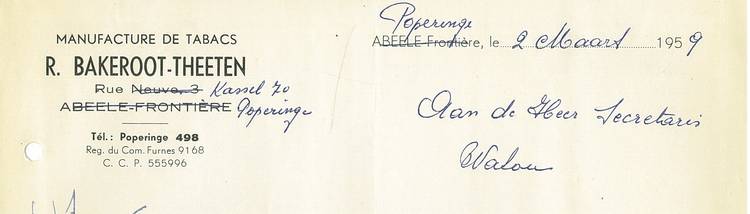 MANUFACTURE DE TABACS
R. BAKEROOT-THEETEN
Rue Neuve, 3 Kassel 70
ABEELE-FRONTIÈRE Poperinge
Tél.: Poperinge 498
Reg. du Com. Furnes 9168
C. C. P. 555996
Poperinge
ABEELE-Frontière, le 2 Maart 1959
Aan de Heer Secretaris
Watou